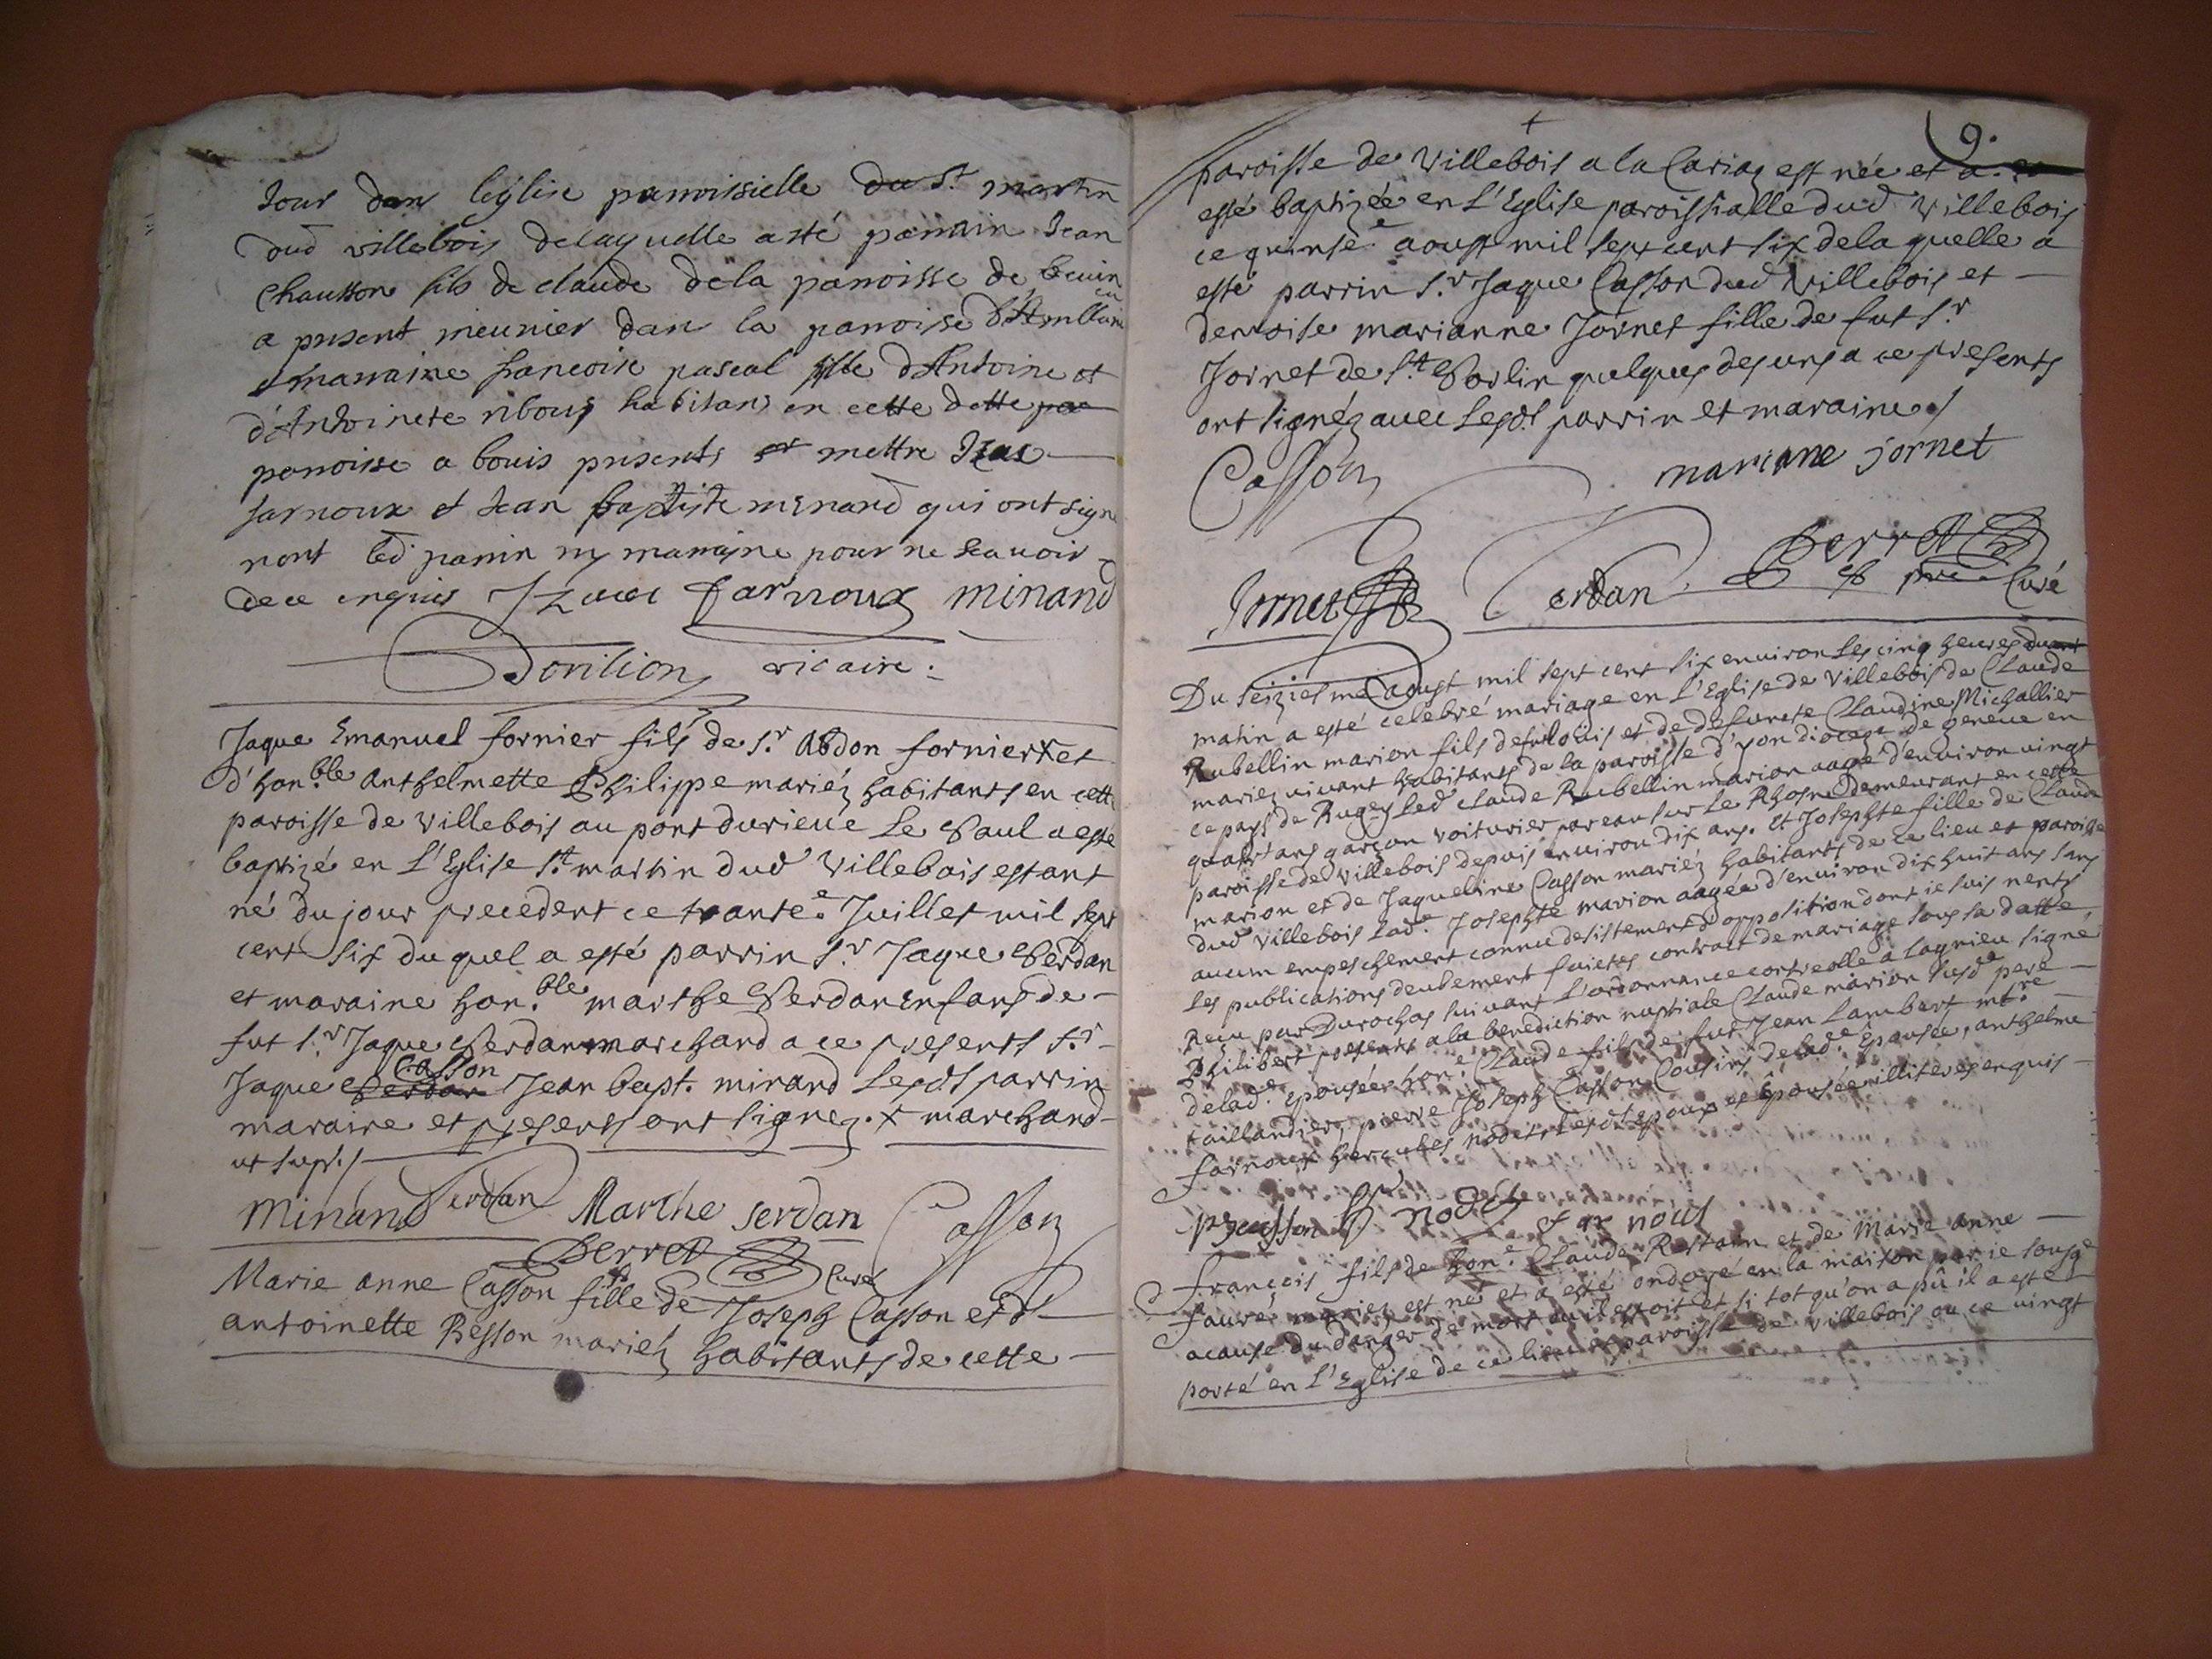 Jour dans leglise parroissielle du St martin
dud villebois delaquelle a esté parrain Jean
Chausson fils de claude dela parroisse de
a present meunier dan la parroisse
et marraine francoise pascal fille d'Antoine et
d'Antoinete ribous habitans en cette dette par
parroisse a bouis presents et mettre Izac
farnoux et Jean baptiste minand qui ont signe
nont led parrin ny marrayne pour ne scavoir
de ce enquis Izaac farnoux minand
Dorilion vicaire
Jaque Emanuel fornier fils de s.r Abdon fornier x et
d'hon.ble Anthelmette Philippe mariéz habitants en cette
paroisse de villebois au pont durieue le Saul a esté
baptizé en L'Eglise s.t martin dud villebois estant
né du jour precedent ce trante.e Juillet mil sept
cent six duquel a esté parrin s.r Jaque Serdan
et maraine hon.ble marthe Serdan enfans de
fut s.r Jaque Serdan marchand a ce presents s.r
Casson
Jaque Serdan Jean bapt. minand lesd.s parrin
maraine et presents ont signez. x marchand
ut sup./
Minand Serdan Marthe serdan Casson
Perret Curé
Marie anne Casson fille de Joseph Casson et d'
antoinette Besson mariéz habitants de cette
9.
paroisse de villebois a la Cariaz est née et a
esté baptizée en L'Eglise paroissialle dud villebois
ce quinse.e aoust mil sept cent six de la quelle a
esté parrin s.r Jaque Casson dud villebois et
demoise marianne Jornet fille de fut s.r
Jornet de s.t Sorlin quelques desuns a ce presents
ont signéz avec lesd.s parrin et maraine /
Casson mariane jornet
Jornet Serdan Perret
ptre Curé
Du seiziesme aoust mil sept cent six environ les cinq heures du
matin a esté celebré mariage en L'Eglise de villebois de Claude
Rubellin marion fils de fut Loüis et de defuncte Claudine Michallier
mariez vivant habitants de la paroisse d'yon diocese de geneve en
ce pays de Bugey led Claude Rubellin marion aagé d'environ vingt
quatr'ans garçon voiturier par eau sur le Rhosne demeurant en cette
paroisse de villebois depuis environ dix ans. et Josephte fille de Claude
marion et de Jaqueline Casson mariéz habitants de ce lieu et paroisse
dud villebois lad.e Josephte marion aagée d'environ dix huit ans sans
aucun empeschement connu desistement d'opposition dont je suis nenty
les publications deulement faictes contract de mariage sous sa datte
Receu par Durochas suivant L'ordonnance controolle a Lagnieu signé
Philibert presents a la benediction nuptiale Claude marion susd.e pere
de lad.e epousée hon.e Claude fils de fut Jean Lambert m.tre
taillandier, pierre Joseph Casson Cousins de lad.e Epousée, anthelme
farnoux hercules nodet, lesd.s epoux et Epousée illiteres enquis
p casson h nodet farnous
François fils de hon.e Claude Rostain et de Marie anne
faure mariez est né et a esté ondoyé en la maison par je sousg.é
a cause du danger de mort ou il estoit et si tot qu'on a pû il a esté
porté en L'Eglise de ce lieu et paroisse de villebois ou ce vingt